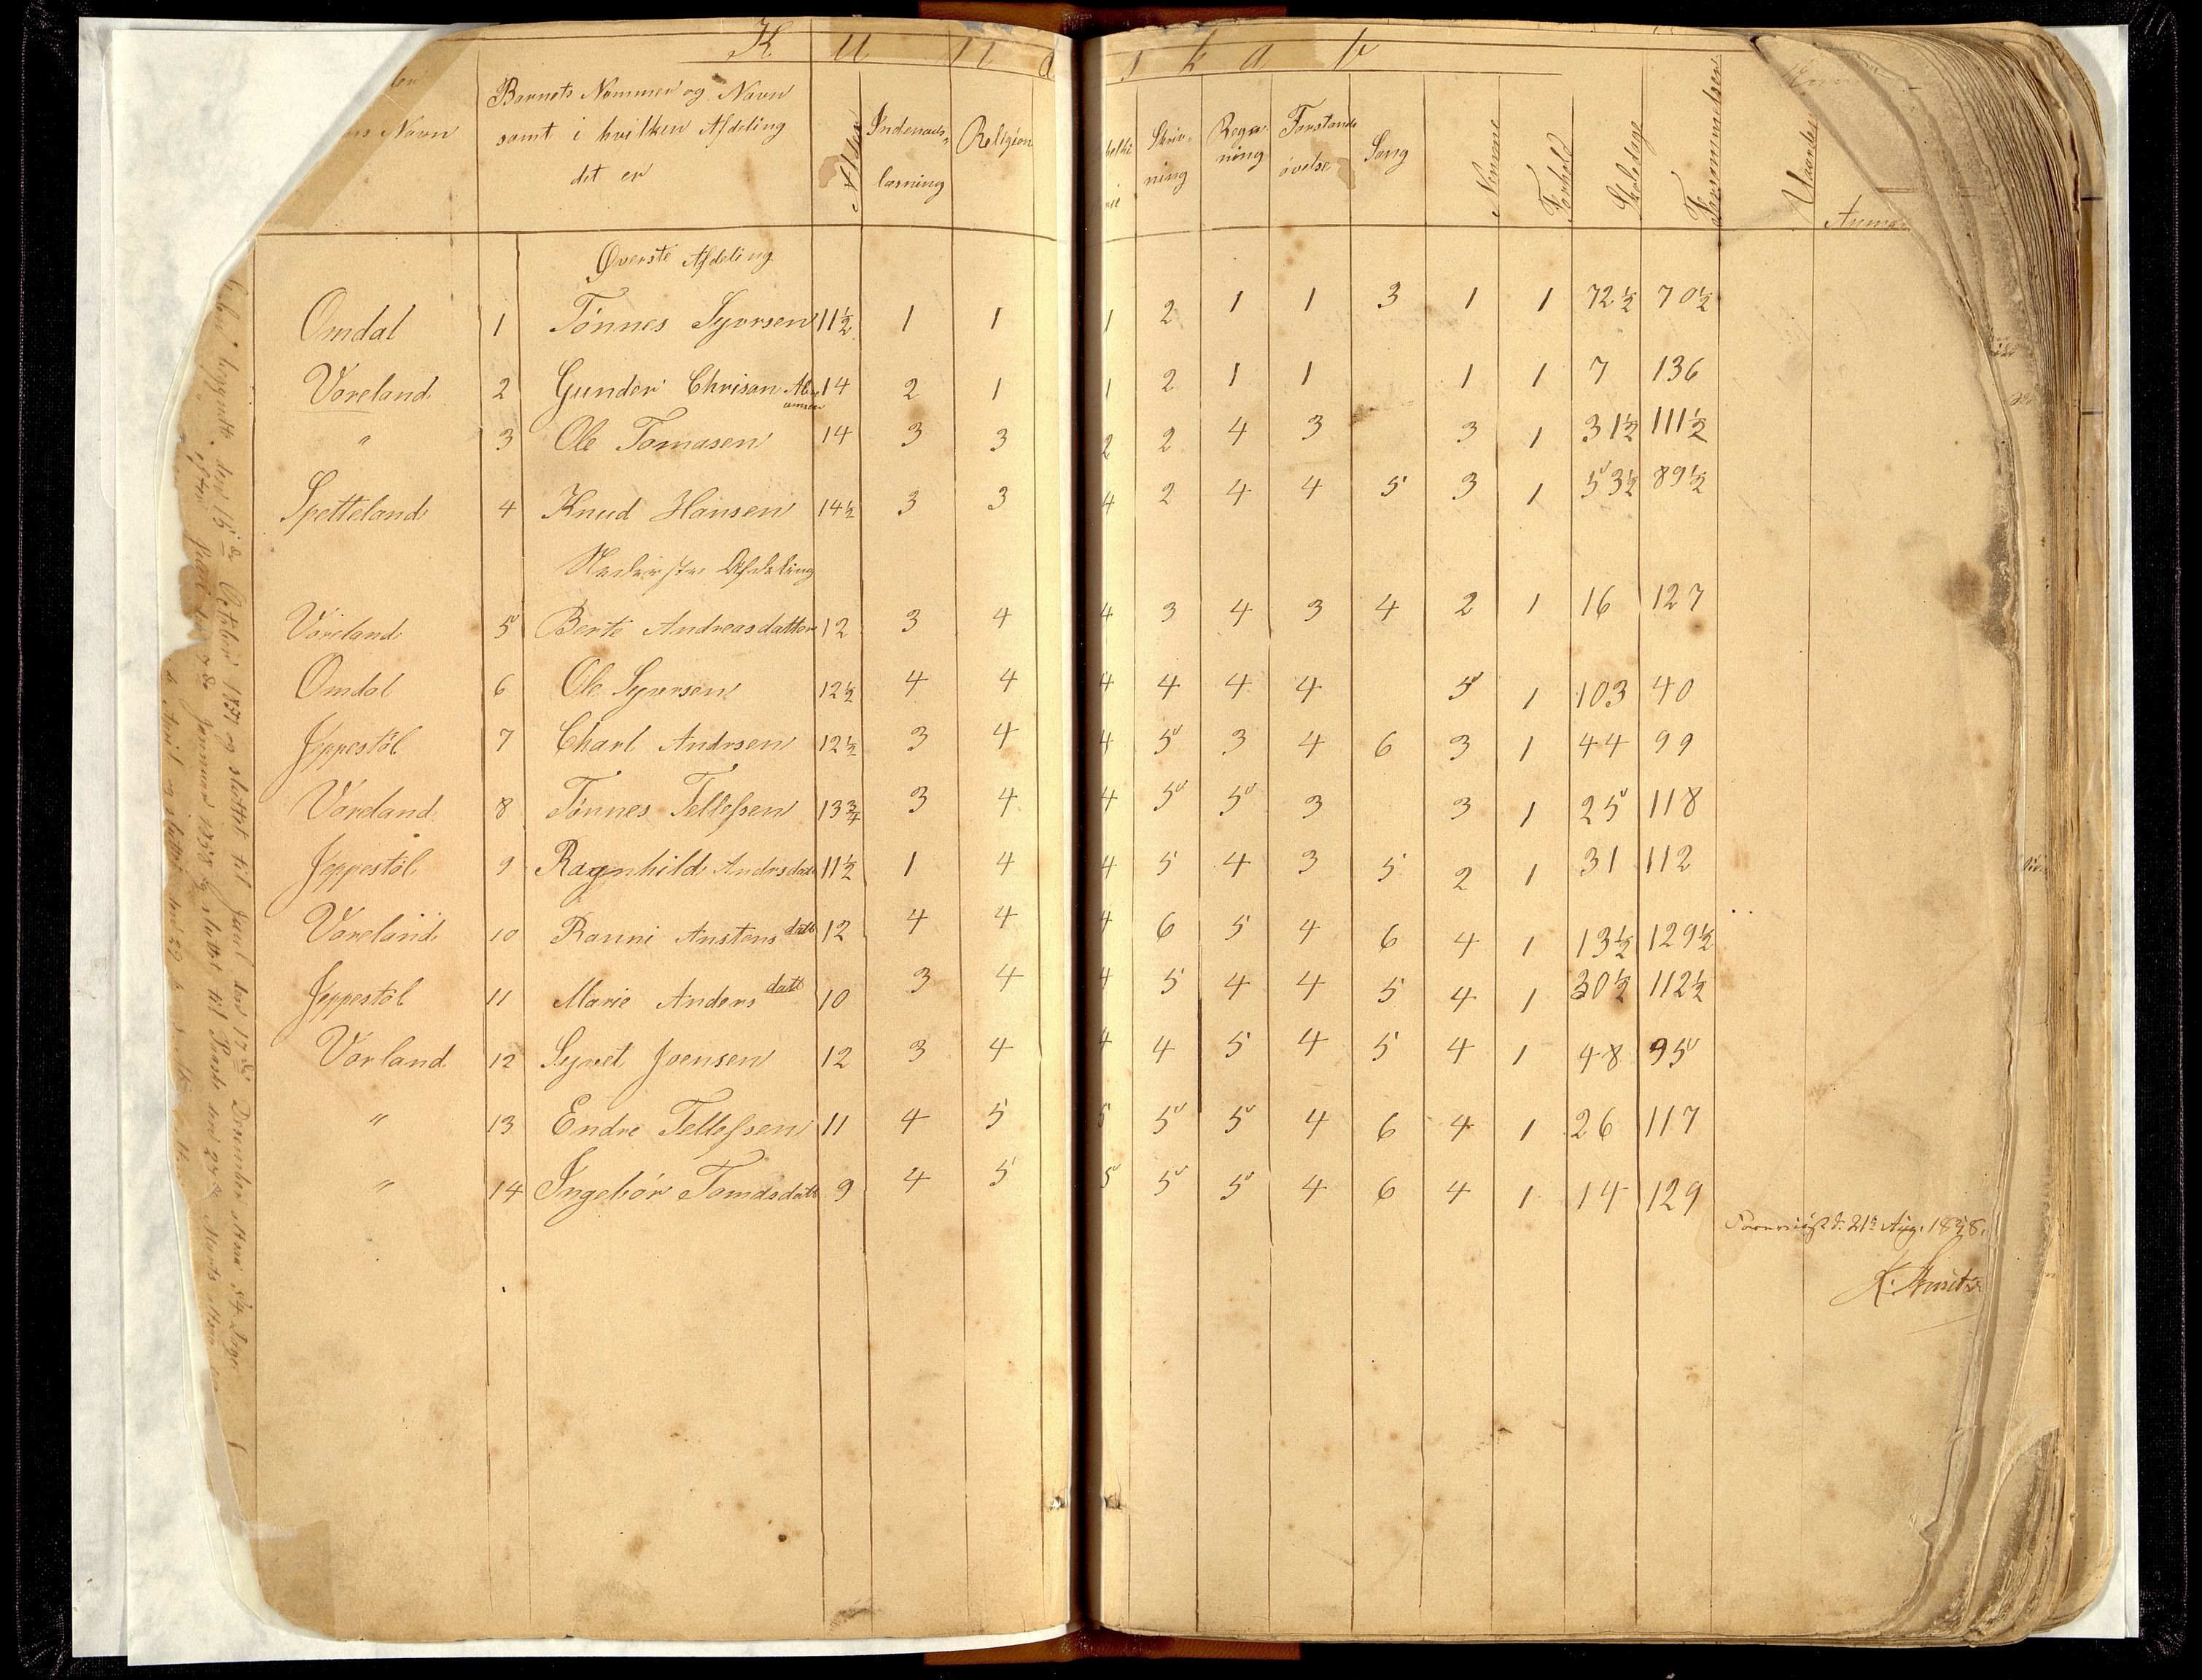 K u n d s k a b
Navn
Barnets Nommer og Navn
samt i hvilken Afdeling
det er
Alder
Indenads-
læsning
Religion
Skriv-
ning
Regn-
ning
Forstands
øvelse
Sang
Nemme
Forhold
Skoledage
Forsømmelser
Anmæ
Øverste Afdeling
Omdal 1 Tønnes Syvrsen 11½ 1 1 1 2 1 1 3 1 1 72½ 70½
Voreland 2 Gunder Chrisan 14 2 1 1 2 1 1 1 1 7 136
" 3 Ole Tomasen 14 3 3 2 2 4 3 3 1 31½ 111½
Spetteland 4 Knud Hansen 14½ 3 3 4 2 4 4 5 3 1 53½ 89½
Nederste Afdeling
Voreland 5 Berte Andreasdatter 12 3 4 4 3 4 3 4 2 1 16 127
Omdal 6 Ole Syvrsen 12½ 4 4 4 4 4 4 5 1 103 40
Jeppestøl 7 Charl Andrsen 12½ 3 4 4 5 3 4 6 3 1 44 99
Voreland 8 Tønnes Tellefsen 13¾ 3 4 4 5 5 3 3 1 25 118
Jeppestøl 9 Ragnhild Andrsdatt 11½ 1 4 4 5 4 3 5 2 1 31 112
Voreland 10 Ranni Anstensdatt 12 4 4 4 6 5 4 6 4 1 13½ 129½
Jeppestøl 11 Marie Andersdatt 10 3 4 4 5 4 4 5 4 1 30½ 112½
Vorland 12 Syvet Joensen 12 3 4 4 4 5 4 5 4 1 48 95
" 13 Endre Tellefsen 11 4 5 5 5 5 4 6 4 1 26 117
" 14 Ingebør Tomasdatt 9 4 5 5 5 5 4 6 4 1 14 129
21de Aug. 1858.
begyndt den 15de October 1857 og sluttet til Juul den 17de December
Januar 1858 og sluttet til Paaske den 27de Marts
April og sluttet den 29